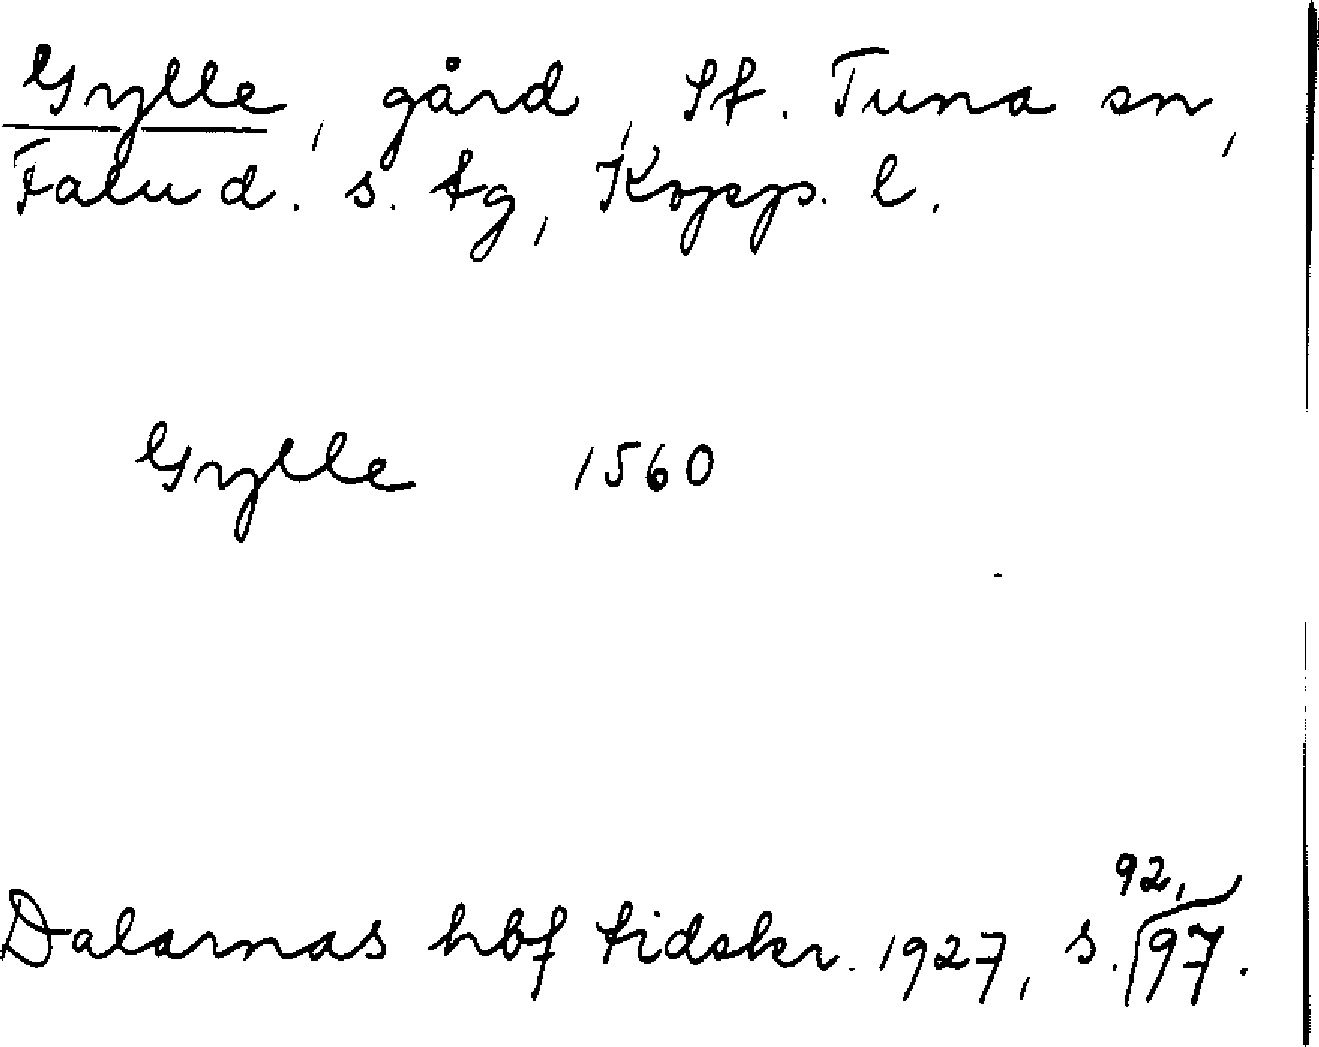 Gylle, gård, St. Tuna sn,
Falu d. s. tg, Kopp. l.
Gylle 1560
92,
Dalarnas hbf tidskr. 1927, s. 97.